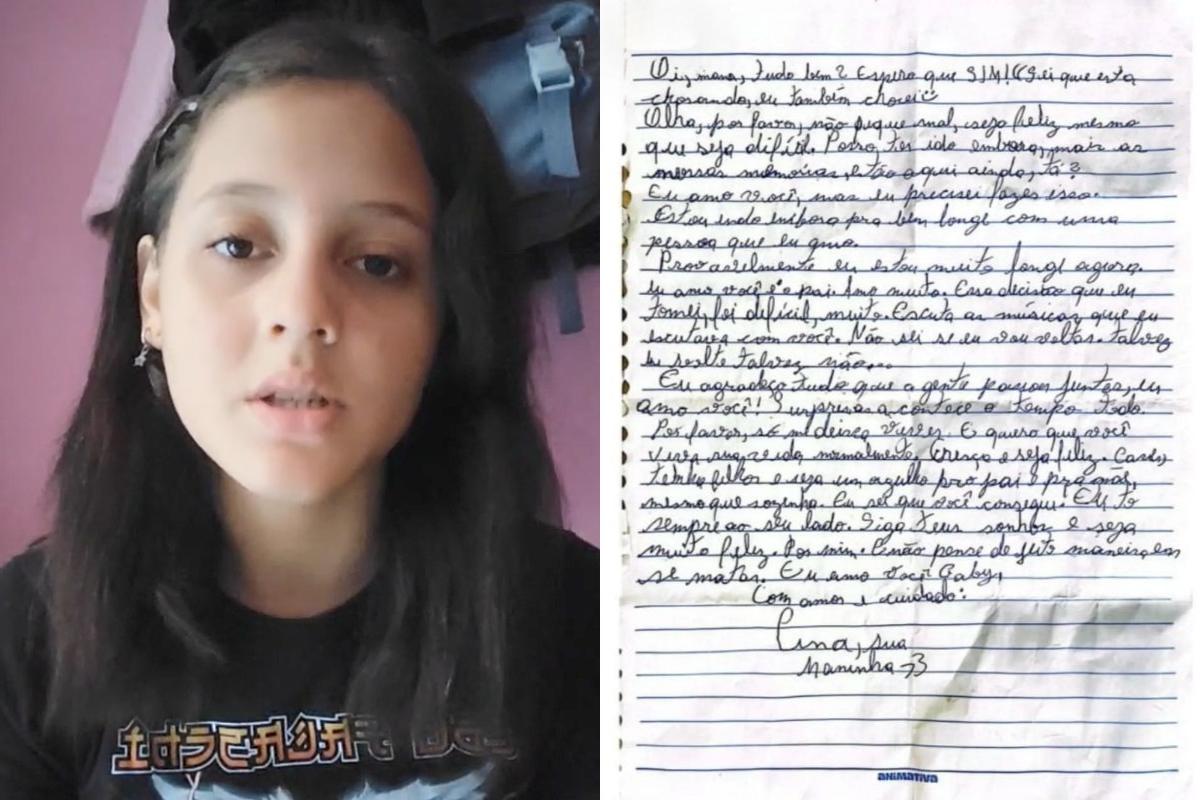 Oi, mana, tudo bem? Espero que SIM! (Sei que esta
chorando, eu também chorei
Olha, por favor, não fique mal, seja feliz mesmo
que seja difícil. Posso ter ido embora, mais as
nossas memórias, estão aqui ainda, tá?
Eu amo você, mas eu precisei fazer isso.
Estou indo embora pra bem longe com uma
pessoa que eu amo.
Provavelmente eu estou muito longe agora.
Eu amo você e o pai. Amo muito. Essa decisão que eu
tomei, foi difícil, muito. Escuta as músicas que eu
escutava com você. Não sei se eu vou voltar. Talvez
eu volte talvez não...
Eu agradeço tudo que a gente passou juntas, eu
amo você! Surpresas acontece o tempo todo.
Por favor, só me deixa viver. E quero que você
viva sua vida normalmente. Cresça e seja feliz. Case,
tenha filhos e seja um orgulho pro pai e pra mãe,
mesmo que sozinha. Eu sei que você consegue. Eu to
sempre ao seu lado. Siga teus sonhos e seja
muito feliz. Por mim. E não pense de jeito maneira, em
se matar. Eu amo você Gaby,
Com amor e cuidado:
sua
Maninha <3
ANIMATIVA